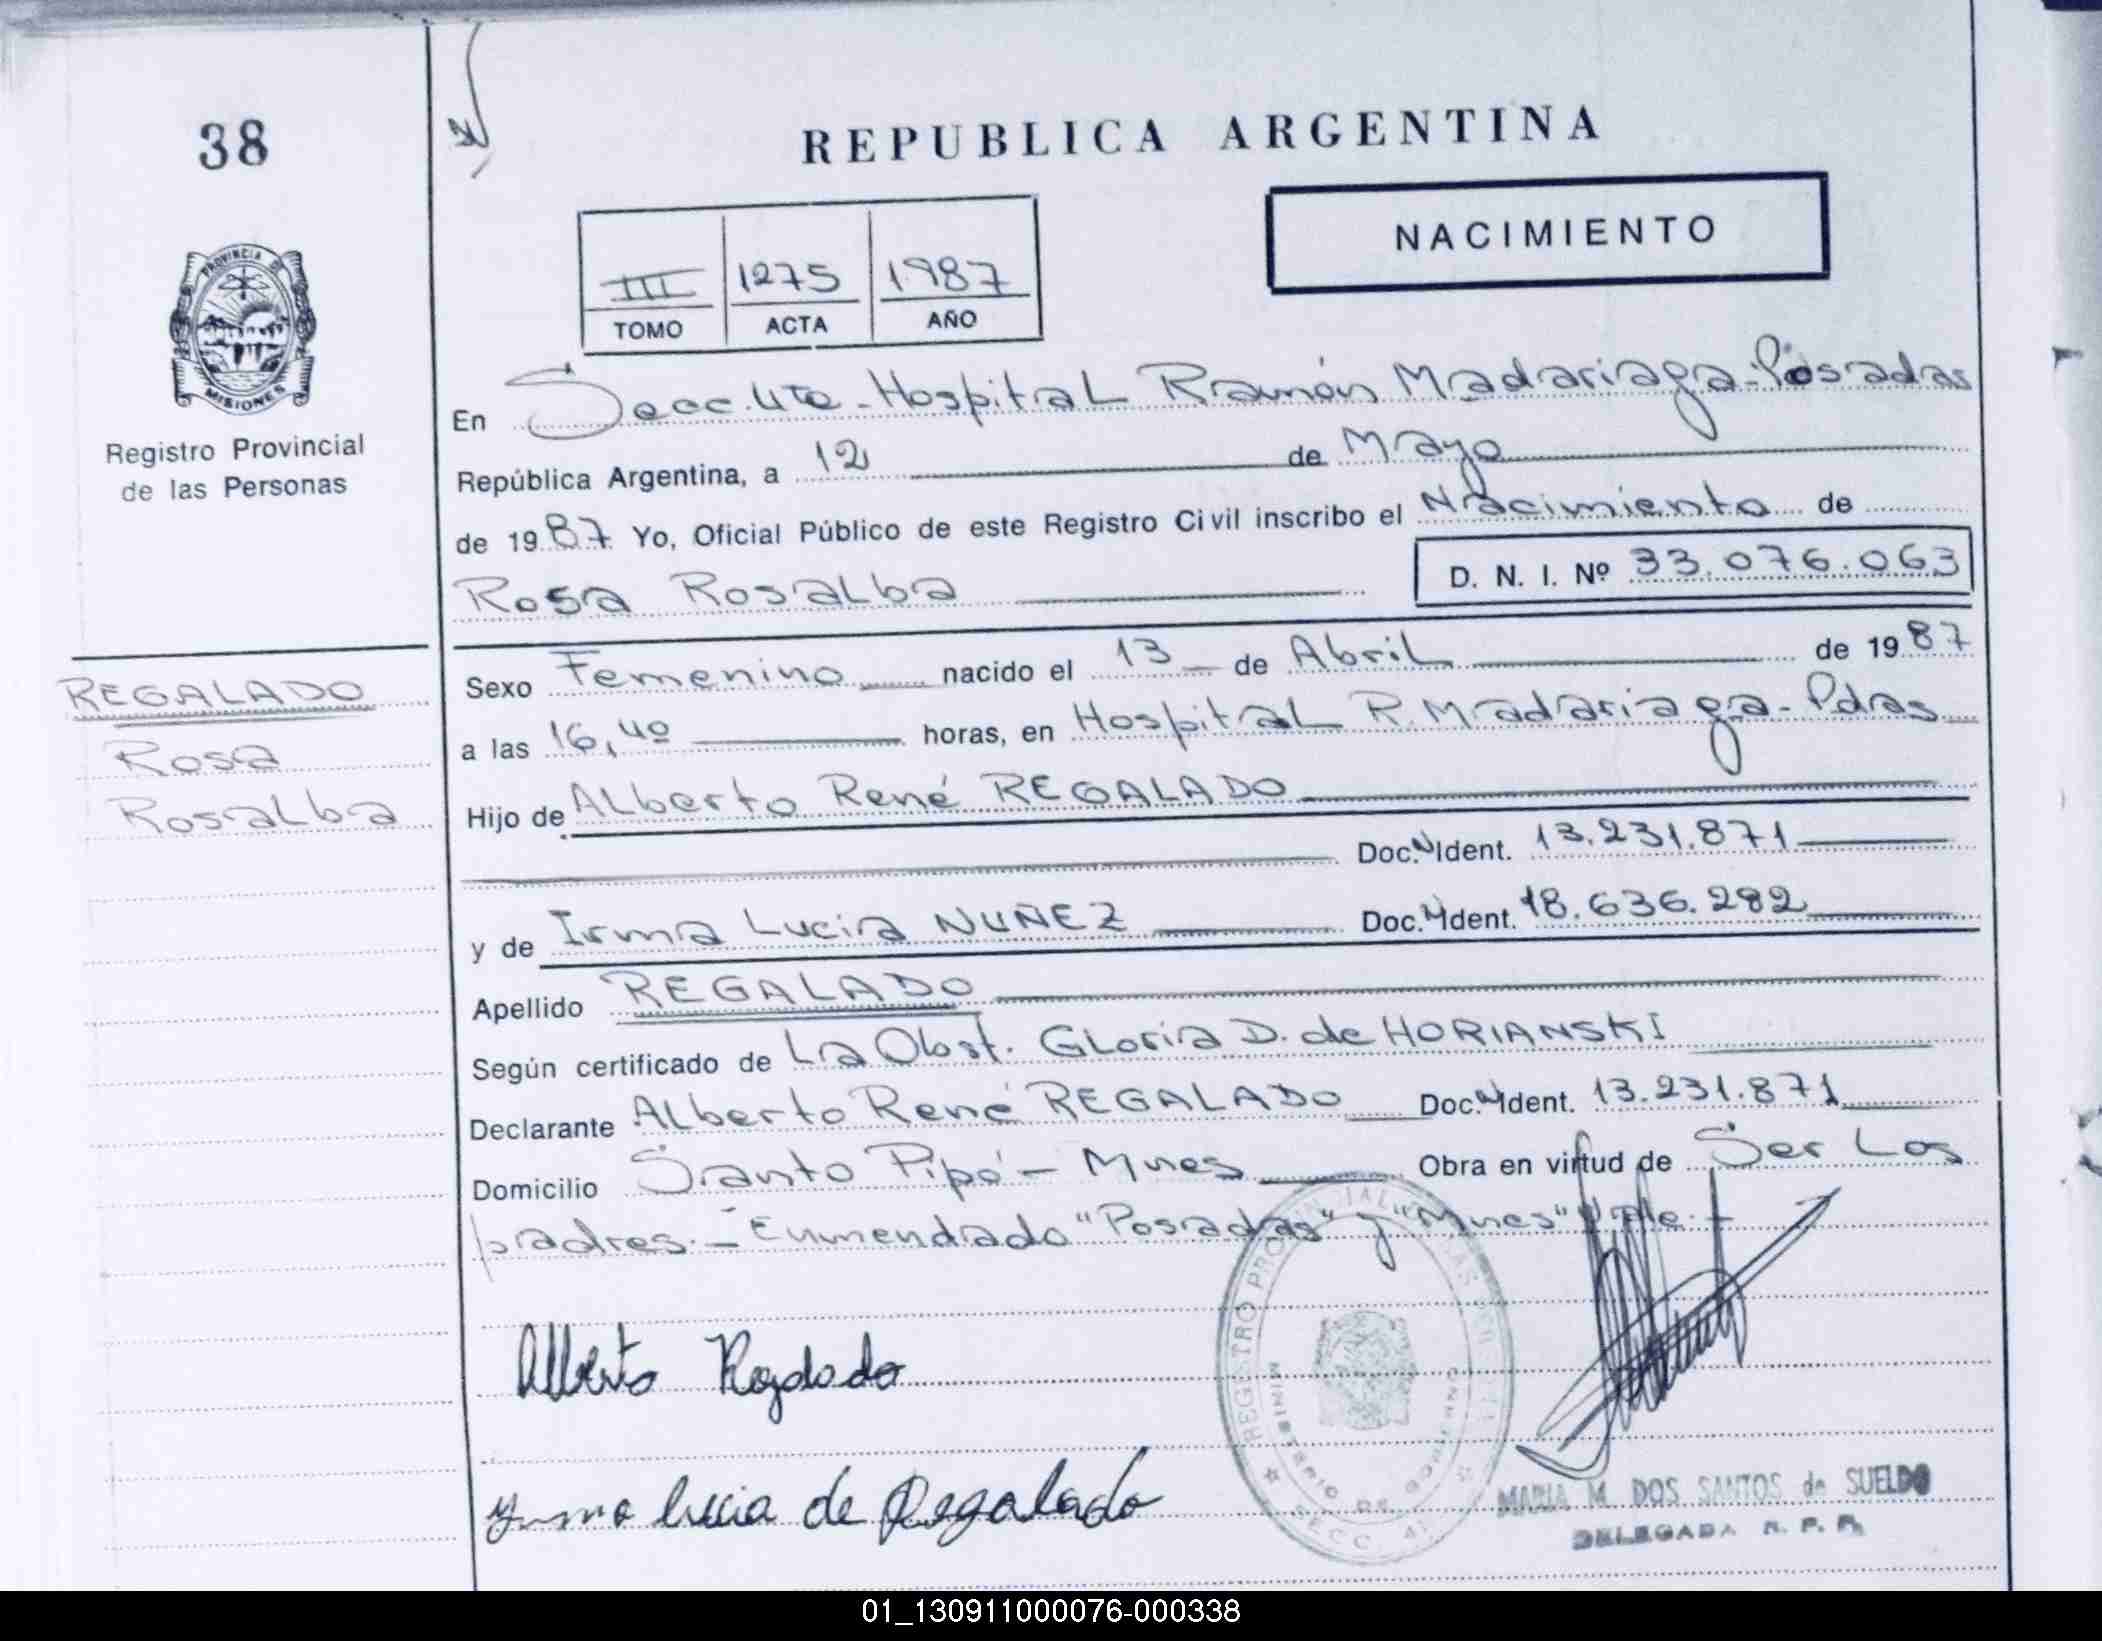 38
REPUBLICA ARGENTINA
NACIMIENTO
III 1275 1987
TOMO ACTA AÑO
PROVINCIA DE
MISIONES
Registro Provincial
de las Personas
En Secc. 4ta - Hospital Ramón Madariaga - Posadas
República Argentina, a 12 de Mayo
de 1987 Yo, Oficial Público de este Registro Civil inscribo el Nacimiento de
Rosa Rosalba D. N. I. Nº 33.076.063
REGALADO
Rosa
Rosalba
Sexo Femenino nacido el 13 de Abril de 1987
a las 16,40 horas, en Hospital R. Madariaga - Pdas
Hijo de Alberto René REGALADO
Doc. N Ident. 13.231.871
y de Irma Lucia NUÑEZ Doc. N Ident. 18.636.282
Apellido REGALADO
Según certificado de La Obst. Gloria D. de HORIANSKI
Declarante Alberto René REGALADO Doc. N Ident. 13.231.871
Domicilio Santo Pipó - Mnes Obra en virtud de Ser Los
padres. - Enmendado "Posadas" y "Mnes" Vale. -
Alberto Regalado
Irma lucia de Regalado
REGISTRO PROVINCIAL DE LAS PERSONAS
MINISTERIO DE GOBIERNO
SECC. 4
MARIA M. DOS SANTOS de SUELDO
DELEGADA R. P. P.
01_130911000076-000338